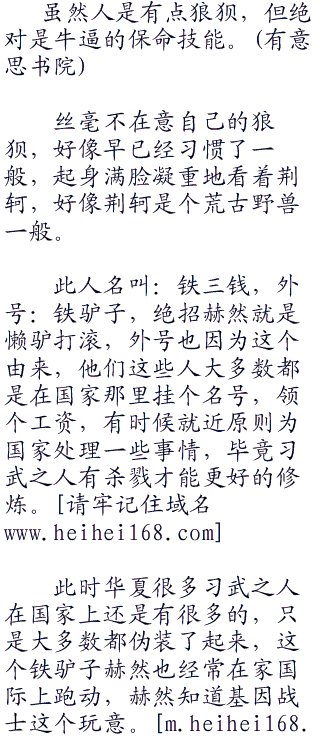 虽然人是有点狼狈，但绝
对是牛逼的保命技能。(有意
思书院)
丝毫不在意自己的狼
狈，好像早已经习惯了一
般，起身满脸凝重地看着荆
轲，好像荆轲是个荒古野兽
一般。
此人名叫：铁三钱，外
号：铁驴子，绝招赫然就是
懒驴打滚，外号也因为这个
由来，他们这些人大多数都
是在国家那里挂个名号，领
个工资，有时候就近原则为
国家处理一些事情，毕竟习
武之人有杀戮才能更好的修
炼。[请牢记住域名
www.heihei168.com]
此时华夏很多习武之人
在国家上还是有很多的，只
是大多数都伪装了起来，这
个铁驴子赫然也经常在家国
际上跑动，赫然知道基因战
士这个玩意。[m.heihei168.